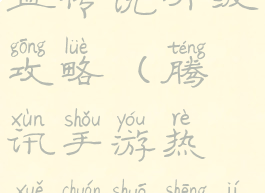 血传说升级
gōng lüè téng
攻略（腾
xùn shǒu yóu rè
讯手游热
xuě chuán shuō shēng jí